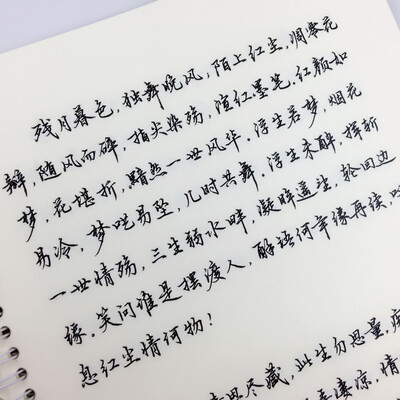 残月暮色，独舞晚风，陌上红尘，凋零花
瓣，随风而碎，指尖染殇，渲红墨笔，红颜如
梦，花堪折，黯然一世风华，浮生若梦，烟花
易冷，梦呓易坠，几时共舞，浮生未醉，择折
一世情殇，三生弱水畔，凝眸遥望，轮回边
缘，笑问谁是摆渡人，醉语何年缘再续，叹
息红尘情何物！
尽藏，此生勿思量，痴
凄凉，情